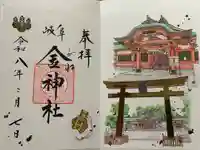 奉拝
岐阜
金神社
令和八年二月七日